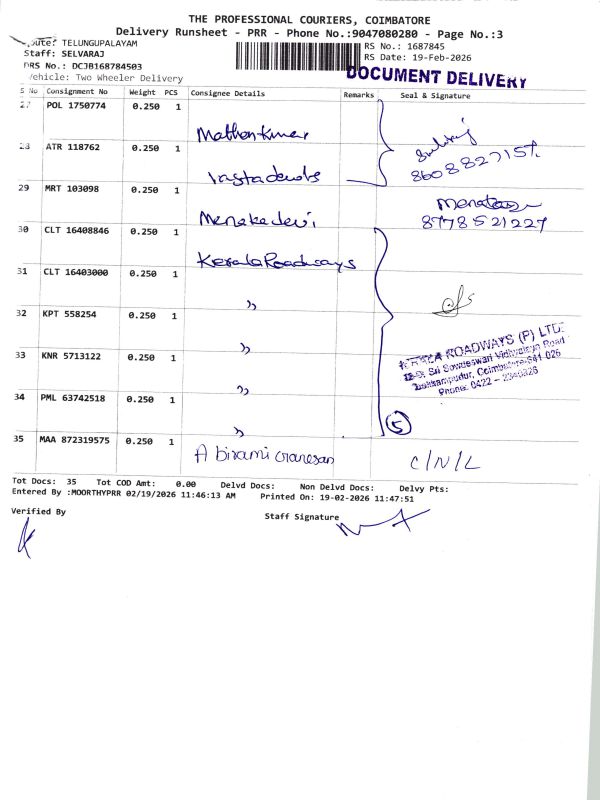 THE PROFESSIONAL COURIERS, COIMBATORE
Delivery Runsheet - PRR - Phone No.:9047080280 - Page No.:3
Route: TELUNGUPALAYAM
Staff: SELVARAJ
DRS No.: DCJB168784503
Vehicle: Two Wheeler Delivery
RS No.: 1687845
RS Date: 19-Feb-2026
DOCUMENT DELIVERY
S No Consignment No Weight PCS Consignee Details Remarks Seal & Signature
27 POL 1750774 0.250 1 Mathankumar
28 ATR 118762 0.250 1
29 MRT 103098 0.250 1 Menakadevi 8778521227
30 CLT 16408846 0.250 1 KeralaRoadways
31 CLT 16403000 0.250 1 "
32 KPT 558254 0.250 1 "
33 KNR 5713122 0.250 1 "
34 PML 63742518 0.250 1 "
KERALA ROADWAYS (P) LTD.
Sri Sowdeswari Vidhyalaya Road
Coimbatore-641 026
Phone: 0422 -
5
35 MAA 872319575 0.250 1 Abirami C/N/L
Tot Docs: 35 Tot COD Amt: 0.00 Delvd Docs: Non Delvd Docs: Delvy Pts:
Entered By :MOORTHYPRR 02/19/2026 11:46:13 AM Printed On: 19-02-2026 11:47:51
Verified By Staff Signature